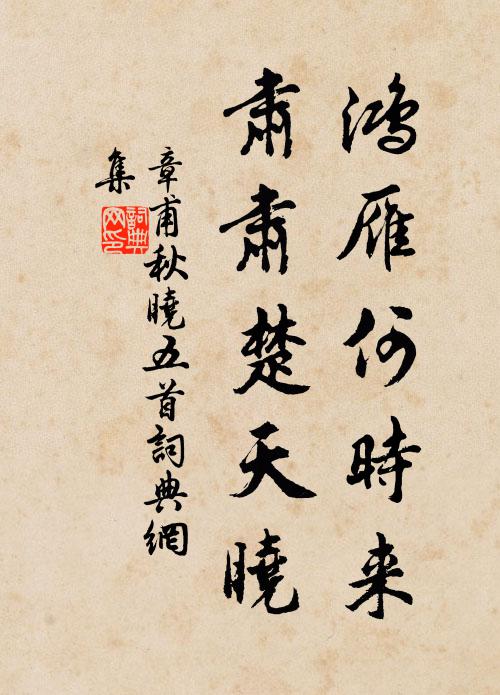 鸿雁何時来
肅肅楚天曉
章甫秋曉五首詞典網
集
詞典網印